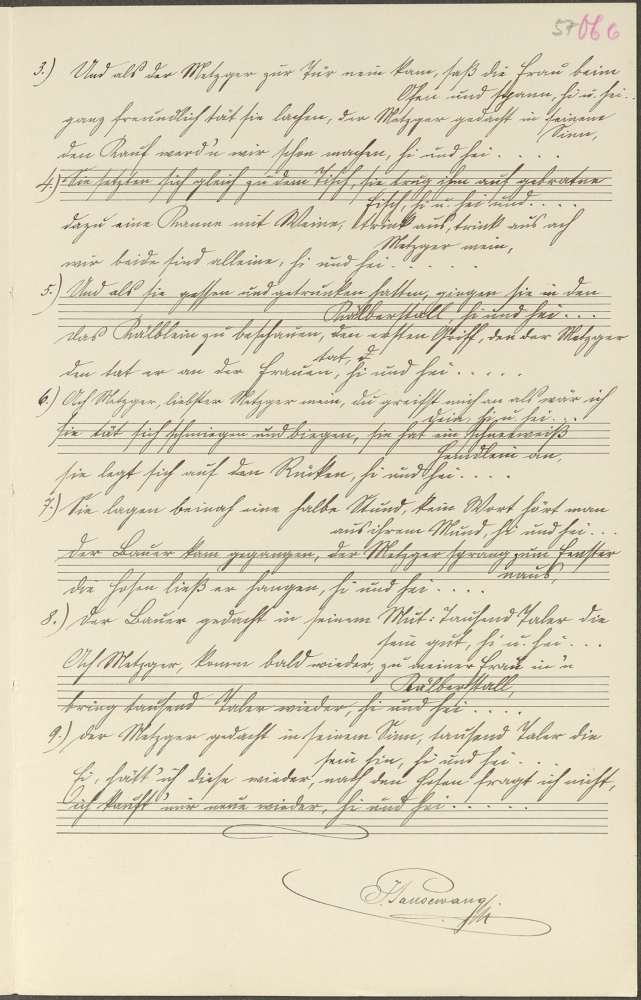 57 066
3.) Und als der Metzger zur Tür nein kam, saß die Frau beim
Ofen und spann, hi u. hei..
ganz freundlich tät sie lachen, der Metzger gedacht in seinem
Sinn,
den Kauf werd'n wir schon machen, hi und hei . . . .
4.) Sie setzten sich gleich zu dem Tisch, sie trug ihm auf gebratne
Fisch, hi u. hei und. . . .
dazu eine Kanne mit Weine, trink aus, trink aus ach
Metzger mein,
wir beide sind alleine, hi und hei . . . . .
5.) Und als sie gessen und getrunken hatten, gingen sie in den
Kälberstall hi und hei. . .
das Kälblein zu beschauen, den ersten Griff, den der Metzger
tat,
den tat er an der Frauen, hi und hei . . . . .
6.) Ach Metzger, liebster Metzger mein, du greifst mich an als wär ich
dein, hi u. hei. . .
sie tät sich schmiegen und biegen, sie hat ein schneeweiß
Hemdlein an,
sie legt sich auf den Rücken, hi und hei . . . .
7.) Sie lagen beinah eine halbe Stund, kein Wort hört man
aus ihrem Mund, hi und hei. . .
der Bauer kam gegangen, der Metzger sprang zum Fenster
naus,
die Hosen ließ er hangen, hi und hei . . . .
8.) Der Bauer gedacht in seinem Mut: Tausend Taler die
sein gut, hi u. hei. . .
Ach Metzger, komm bald wieder, zu meiner Frau in 'n
Kälberstall,
bring tausend Taler wieder, hi und hei . . . .
9.) Der Metzger gedacht in seinem Sinn, tausend Taler die
sein hin, hi und hei. . .
Ei, hätt' ich diese wieder, nach den Hosen fragt ich nicht,
ich kauft' mir neue wieder, hi und hei . . . . .
Pausewang